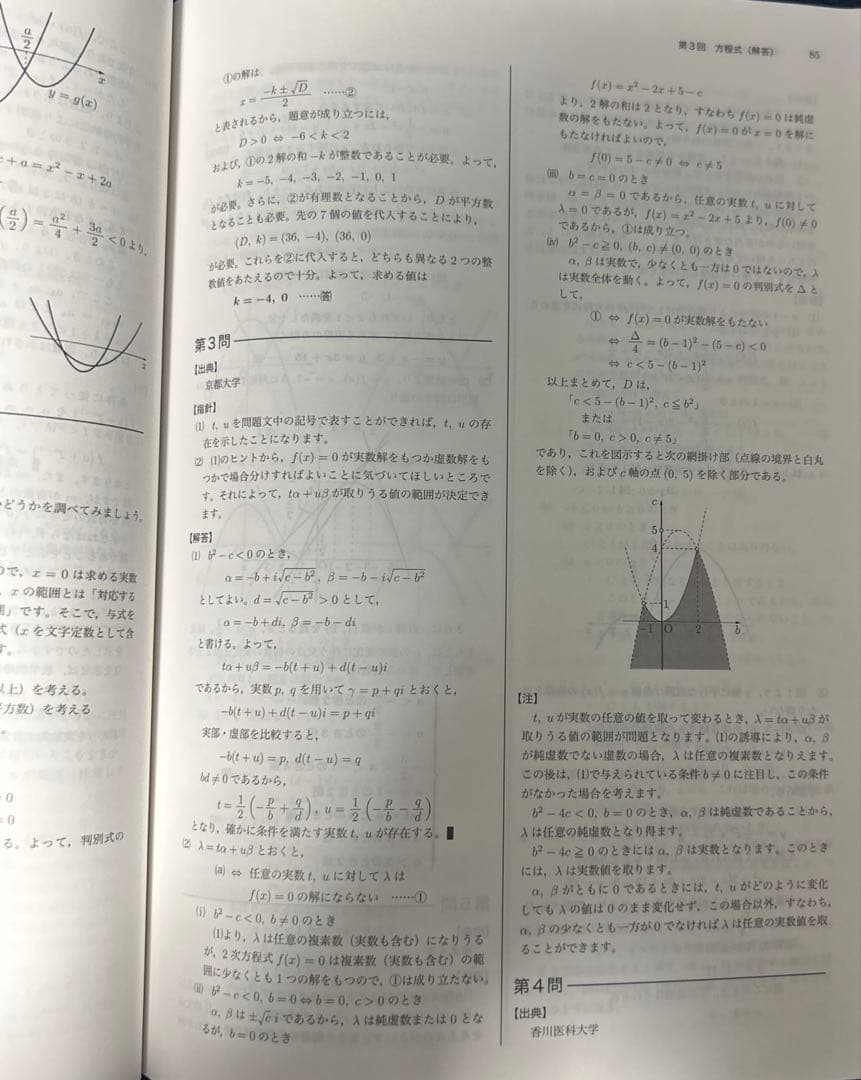 a/2
x
y = g(x)
+ a = x² − x + 2a
(a/2) = a²/4 + 3a/2 < 0 より,
x
かどうかを調べてみましょう.
ので, x = 0 は求める実数
x の範囲とは「対応する
」です. そこで, 与式を
式 (x を文字定数として含
す.
以上) を考える.
平方数) を考える
= 0
= 0
る. よって, 判別式の
第3回 方程式（解答） 85
①の解は,
x = (−k ± √D)/2 ……②
と表されるから, 題意が成り立つには,
D > 0 ⇔ −6 < k < 2
および, ①の2解の和 −k が整数であることが必要. よって,
k = −5, −4, −3, −2, −1, 0, 1
が必要. さらに, ②が有理数となることから, D が平方数
となることも必要. 先の7個の値を代入することにより,
(D, k) = (36, −4), (36, 0)
が必要. これらを②に代入すると, どちらも異なる2つの整
数値をあたえるので十分. よって, 求める値は
k = −4, 0 ……答
第3問
【出典】
京都大学
【指針】
(1) t, u を問題文中の記号で表すことができれば, t, u の存
在を示したことになります.
(2) (1)のヒントから, f(x) = 0 が実数解をもつか虚数解をも
つかで場合分けすればよいことに気づいてほしいところで
す. それによって, tα + uβ が取りうる値の範囲が決定でき
ます.
【解答】
(1) b² − c < 0 のとき,
α = −b + i√(c − b²), β = −b − i√(c − b²)
としてよい. d = √(c − b²) > 0 として,
α = −b + di, β = −b − di
と書ける. よって,
tα + uβ = −b(t + u) + d(t − u)i
であるから, 実数 p, q を用いて γ = p + qi とおくと,
−b(t + u) + d(t − u)i = p + qi
実部・虚部を比較すると,
−b(t + u) = p, d(t − u) = q
bd ≠ 0 であるから,
t = 1/2(−p/b + q/d), u = 1/2(−p/b − q/d)
となり, 確かに条件を満たす実数 t, u が存在する. ■
(2) λ = tα + uβ とおくと,
(a) ⇔ 任意の実数 t, u に対して λ は
f(x) = 0 の解にならない ……①
(i) b² − c < 0, b ≠ 0 のとき
(1)より, λ は任意の複素数（実数も含む）になりうる
が, 2次方程式 f(x) = 0 は複素数（実数も含む）の範
囲に少なくとも1つの解をもつので, ①は成り立たない.
(ii) b² − c < 0, b = 0 ⇔ b = 0, c > 0 のとき
α, β は ±√c i であるから, λ は純虚数または 0 とな
るが, b = 0 のとき
f(x) = x² − 2x + 5 − c
より, 2解の和は2となり, すなわち f(x) = 0 は純虚
数の解をもたない. よって, f(x) = 0 が x = 0 を解に
もたなければよいので,
f(0) = 5 − c ≠ 0 ⇔ c ≠ 5
(iii) b = c = 0 のとき
α = β = 0 であるから, 任意の実数 t, u に対して
λ = 0 であるが, f(x) = x² − 2x + 5 より, f(0) ≠ 0
であるから, ①は成り立つ.
(iv) b² − c ≧ 0, (b, c) ≠ (0, 0) のとき
α, β は実数で, 少なくとも一方は 0 ではないので, λ
は実数全体を動く. よって, f(x) = 0 の判別式を Δ と
して,
① ⇔ f(x) = 0 が実数解をもたない
⇔ Δ/4 = (b − 1)² − (5 − c) < 0
⇔ c < 5 − (b − 1)²
以上まとめて, D は,
「c < 5 − (b − 1)², c ≦ b²」
または
「b = 0, c > 0, c ≠ 5」
であり, これを図示すると次の網掛け部（点線の境界と白丸
を除く）, および c 軸の点 (0, 5) を除く部分である.
c
5
4
1
−1 O 2 b
【注】
t, u が実数の任意の値を取って変わるとき, λ = tα + uβ が
取りうる値の範囲が問題となります. (1)の誘導により, α, β
が純虚数でない虚数の場合, λ は任意の複素数となりえます.
この後は, (1)で与えられている条件 b ≠ 0 に注目し, この条件
がなかった場合を考えます.
b² − 4c < 0, b = 0 のとき, α, β は純虚数であることから,
λ は任意の純虚数となり得ます.
b² − 4c ≧ 0 のときには α, β は実数となります. このとき
には, λ は実数値を取ります.
α, β がともに 0 であるときには, t, u がどのように変化
しても λ の値は 0 のまま変化せず, この場合以外, すなわち,
α, β の少なくとも一方が 0 でなければ λ は任意の実数値を取
ることができます.
第4問
【出典】
香川医科大学